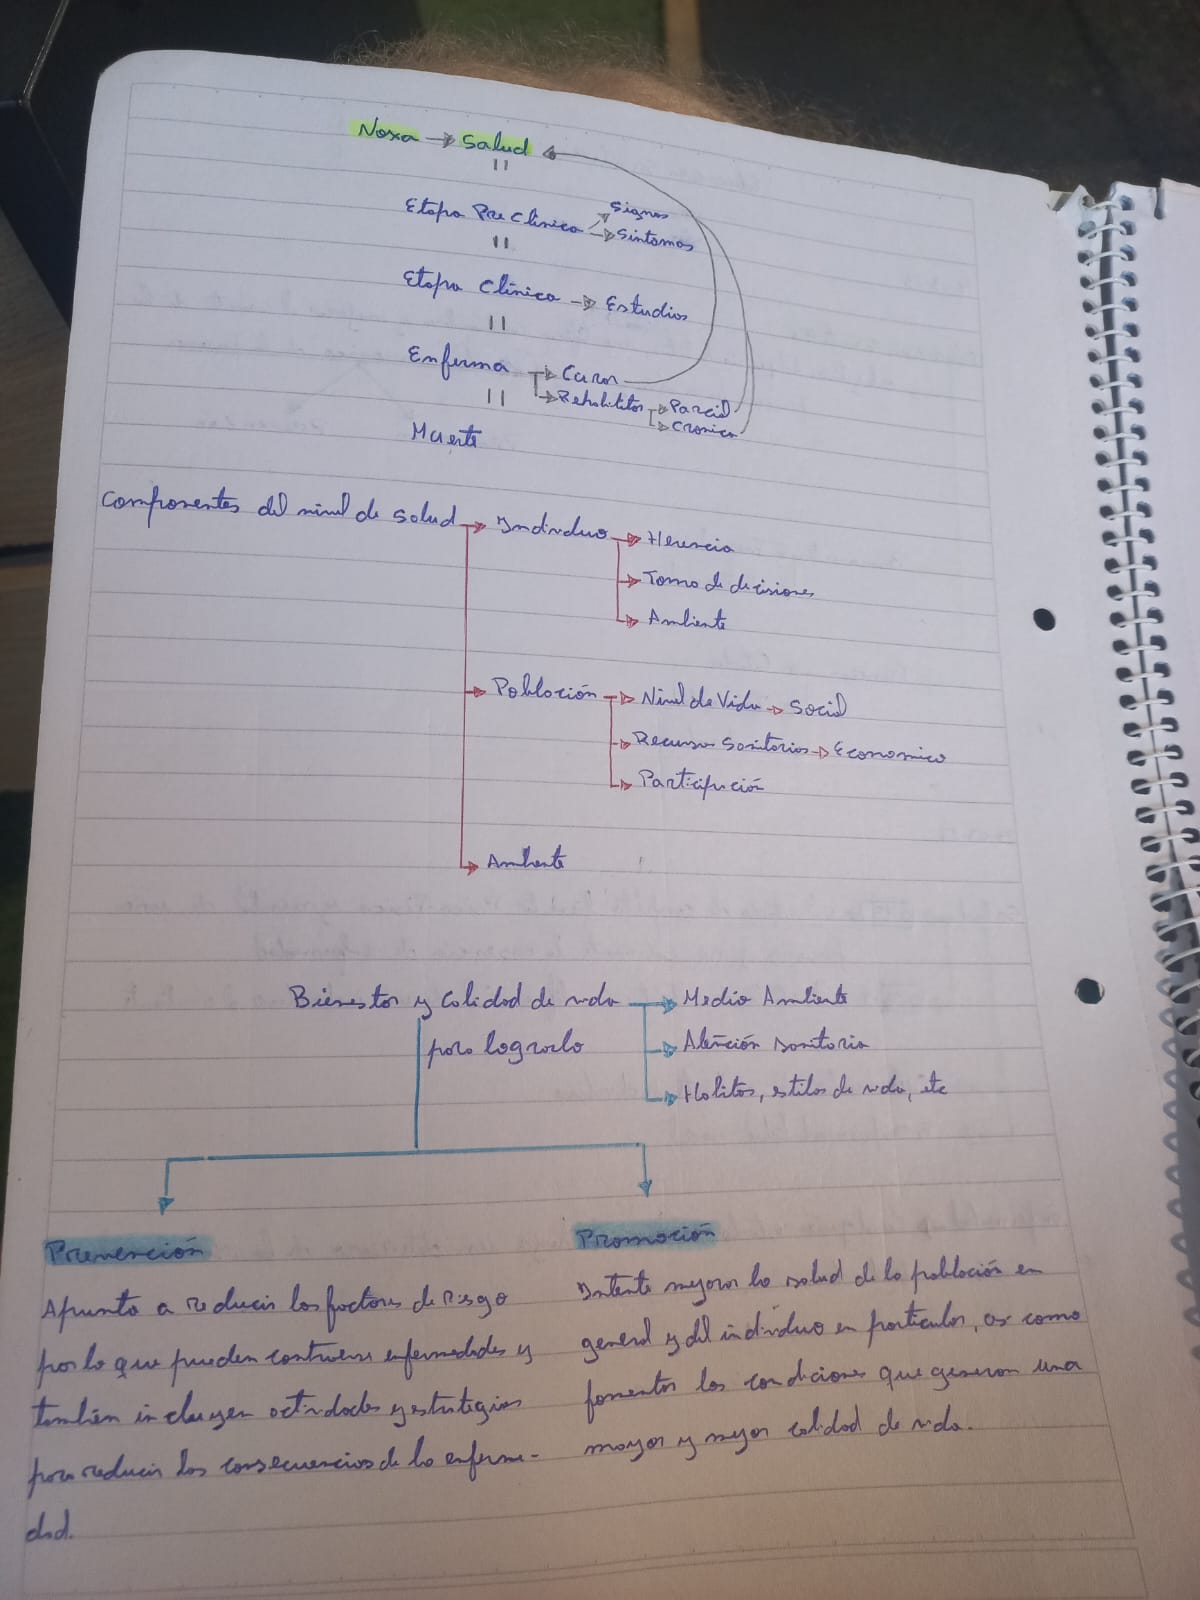 Noxa → Salud
Etapa Pre Clinica → Signos
→ Sintomas
Etapa Clínica → Estudios
Enferma → Curar
→ Rehabilitar → Parcial
→ Cronica
Muerte
Componentes del nivel de salud → Individuo → Herencia
→ Toma de decisiones
→ Ambiente
→ Población → Nivel de Vida → Social
→ Recursos Sanitarios → Economico
→ Participación
→ Ambiente
Bienestar y Calidad de vida → Medio Ambiente
para lograrlo → Atención sanitaria
→ Habitos, estilos de vida, etc
Prevención
Apunta a reducir los factores de Riesgo
por lo que pueden contraerse enfermedades y
también incluyen actividades y estrategias
para reducir las consecuencias de la enferme-
dad.
Promoción
Intenta mejorar la salud de la población en
general y del individuo en particular, as como
fomentar las condiciones que generan una
mayor y mejor calidad de vida.